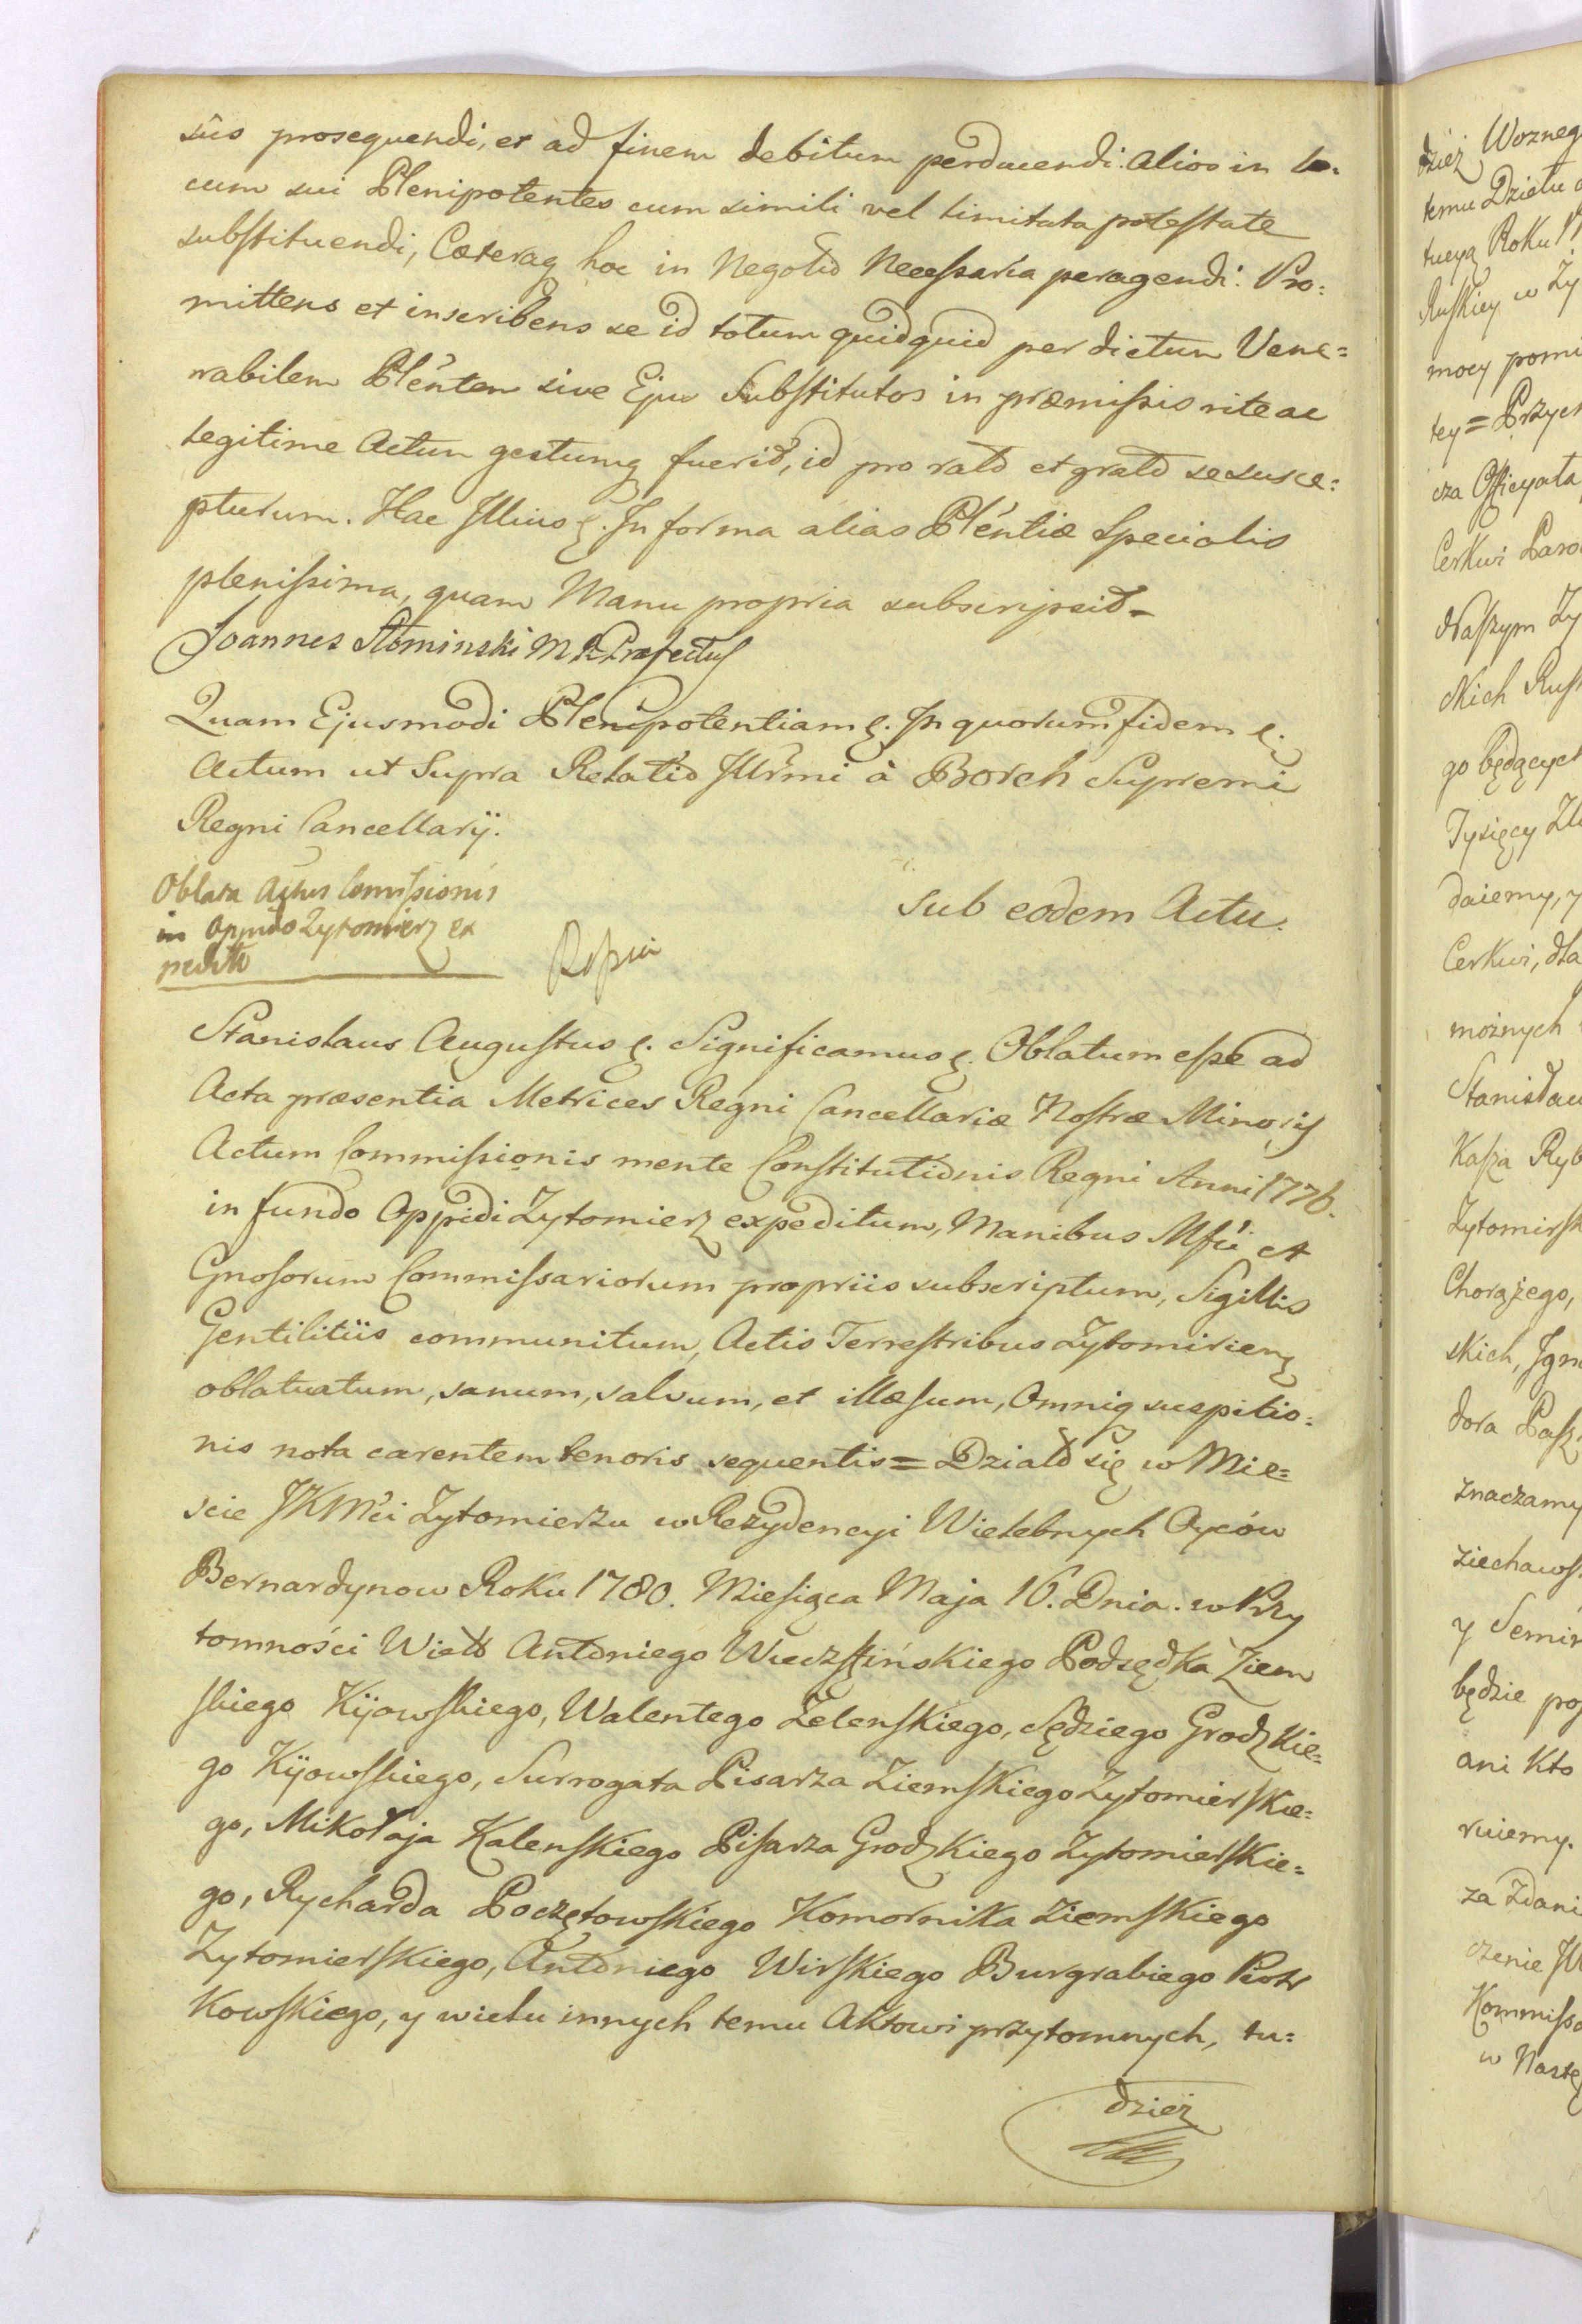 sûs prosequendi, et ad finem debitum perducendi. Alios in lo=
cum sui Plenipotentes cum simili vel limitata potestate
substituendi, Cæteraq hoc in Negotio Necessaria peragendi. Pro=
mittens et inscribens se id totum quidquid per dictum Vene=
rabilem Plênten sive Ejus Substitutos in præmissis rite ac
legitime Actum gestumq fuerit, id pro rato et grato se susce=
pturum. Hac Illius ę. In forma alias Plêntiæ Specialis
plenissima, quam Manu propria subscripsit=
Joannes Słominski M P Præfectus
Quam Ejusmodi Plenipotentiam ę. In quorum fidem ę.
Actum ut Supra Relatio Illr̃mi à Borch Supremi
Regni Cancellarÿ.
Oblata Actus Comissionis
in Oppido Zytomierz ex
pediti
Sub eodem Actu.
Stanislaus Augustus ę. Significamus ę. Oblatum esse ad
Acta præsentia Metrices Regni Cancellariæ Nostræ Minoris
Actum Commissionis mente Constitutionis Regni Anni 1776.
in fundo Oppidi Zytomierz expeditum, Manibus Mfci et
Gnosorum Commissariorum propriis subscriptum, Sigillis
Gentilitiis communitum, Actis Terrestribus Zytomirien
oblatuatum, sanum, salvum, et illæsum, Omniq suspitio=
nis nota carentem tenoris sequentis = Działo się w Mie=
scie JKMci Zytomierzu w Rezydencyi Wielebnych Oyców
Bernardynow Roku 1780. Miesiąca Maja 16. Dnia. w Przy
tomności Wielb Antoniego Podsędka Ziem
skiego Kijowskiego, Walentego Zelenskiego, Sędziego Grodzkie=
go Kijowskiego, Surrogata Pisarza Ziemskiego Zytomierskie=
go, Mikołaja Kalenskiego Pisarza Grodzkiego Zytomierskie=
go, Rycharda Poczętowskiego Komornika Ziemskiego
Zytomierskiego, Antoniego Wirskiego Burgrabiego Piotr
Kowskiego, y wielu innych temu Aktowi przytomnych, tu=
dzież
dzież Wozneg
temu Dziełu
tucyą Roku 17
Ruskiey w Zy
mocy pomi
tey = Przych
cza Officyała
Cerkwi Paro
Naszym Zy
Nich Rus
go będących
Tysięcy Zł
daiemy, y
Cerkwi, dla
możnych
Stanisław
Kasza Ryb
Zytomirsk
Chorążego,
skich, Ign
dora Pasz
znaczamy
ziechaws
y Semin
będzie po
ani Kto
ruiemy.
za Zdani
czenie JW
Kommissa
w Nastę